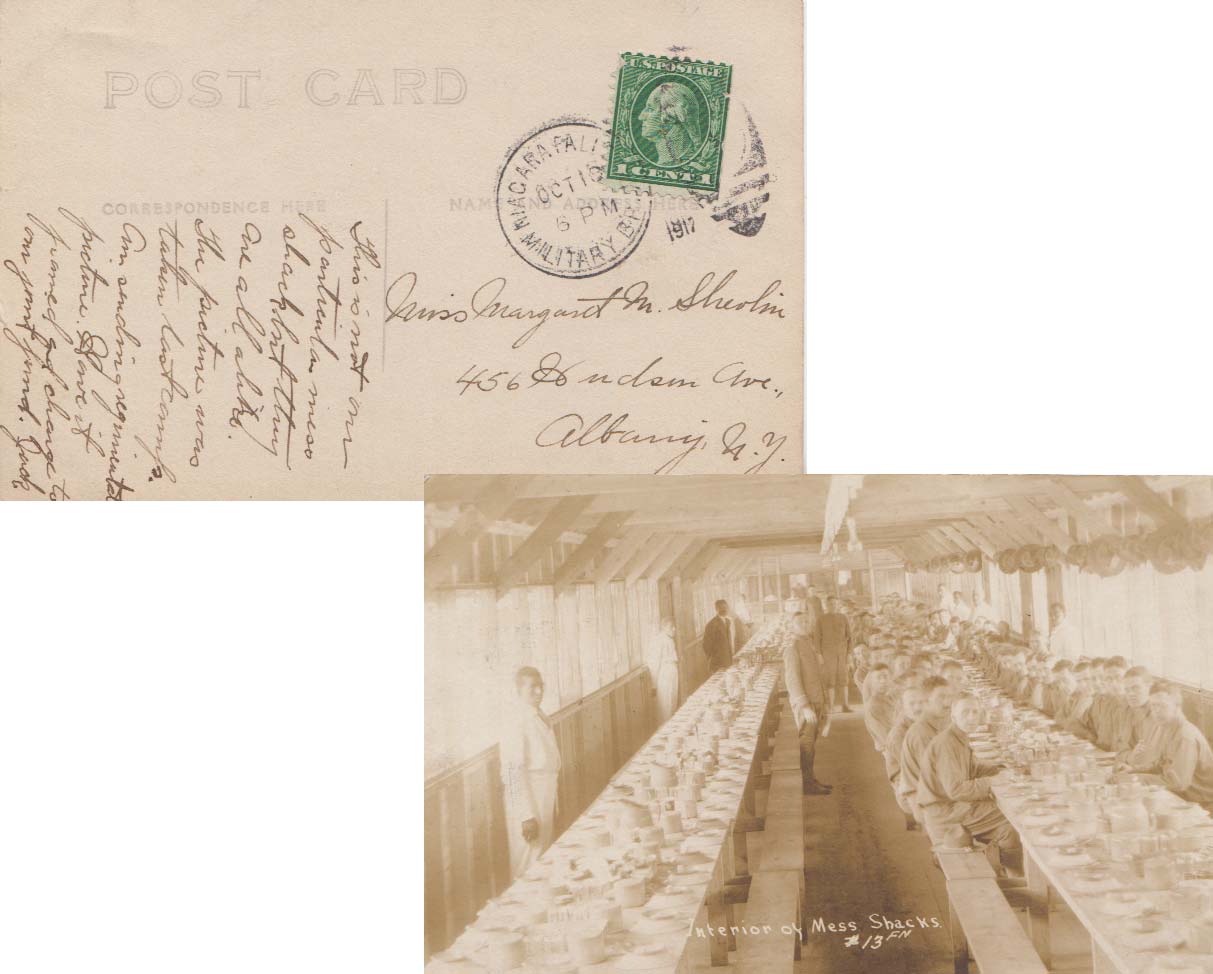 POST CARD
U.S. POSTAGE
1 CENT 1
NIAGARA FALLS
OCT 16
6 PM
1917
MILITARY BR.
CORRESPONDENCE HERE
NAME AND ADDRESS HERE
This is not our
particular mess
shack but they
are all alike.
The picture was
taken last camp.
Am sending regimental
picture. Have it
framed & charge to
our joint fund. Jack
Miss Margaret M. Shevlin
456 Hudson Ave.,
Albany, N.Y.
Interior of Mess Shacks.
#13 FN